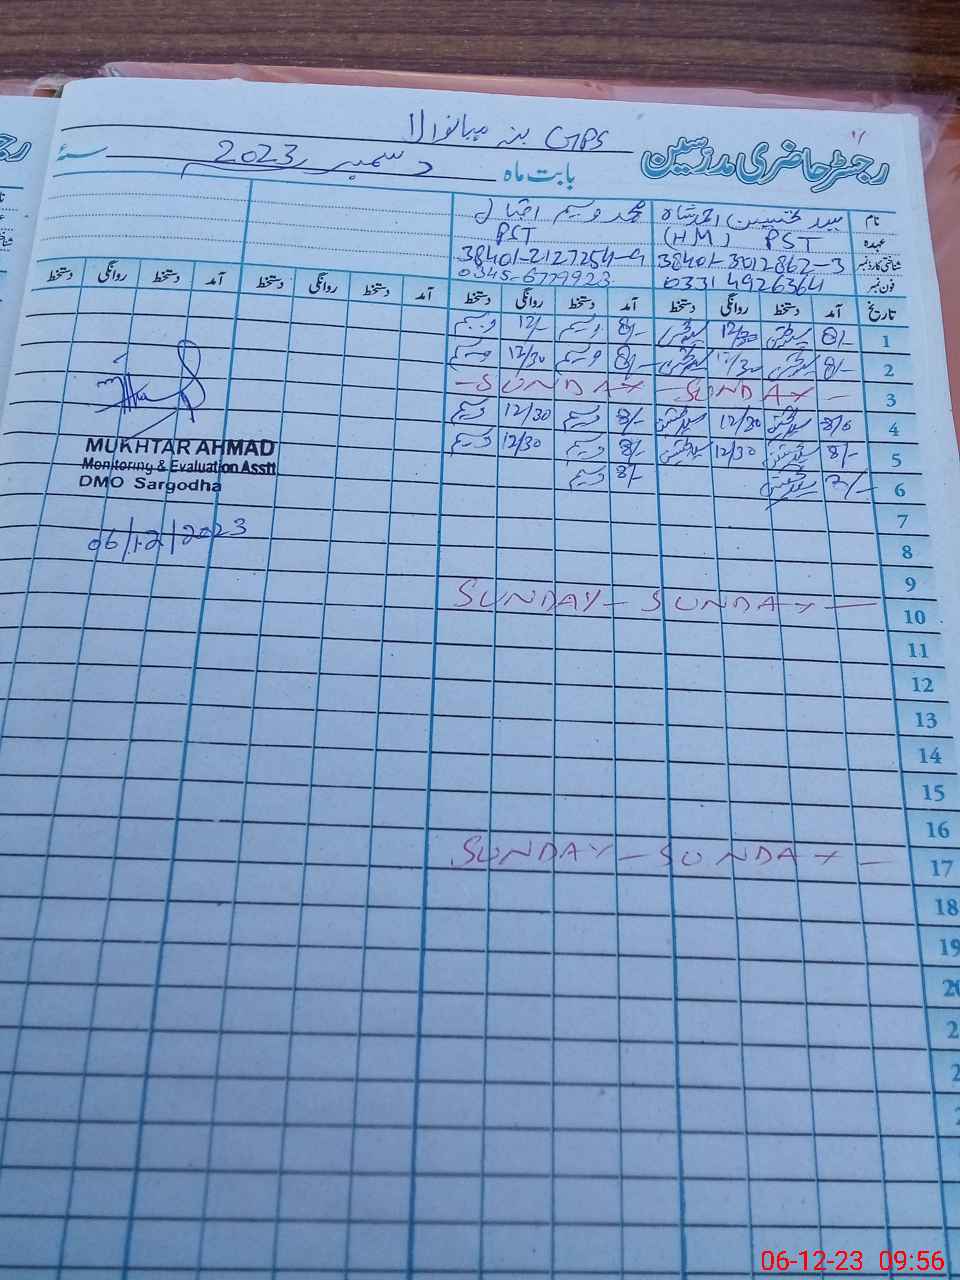 GPS بنہ میانوالا
رجسٹر حاضری مدرسین
بابت ماہ دسمبر 2023 سنہ
نام سید احمد شاہ محمد وسیم اقبال
عہدہ (HM) PST PST
شناختی کارڈ نمبر 38401-3012862-3 38401-2127254-9
فون نمبر 0331 4926364 0345-6779923
تاریخ آمد دستخط روانگی دستخط آمد دستخط روانگی دستخط آمد دستخط روانگی دستخط آمد دستخط روانگی دستخط
1 8/- 12/30 8/- وسیم 12/- وسیم
2 8/- 12/30 8/- وسیم 12/30 وسیم
3 -SUNDAY -SUNDAY -
4 8/- 12/30 8/- وسیم 12/30 وسیم
5 8/- 12/30 8/- وسیم 12/30 وسیم
6 8/- وسیم
7
8
9
10 SUNDAY - SUNDAY -
11
12
13
14
15
16
17 SUNDAY - SUNDAY -
18
19
20
MUKHTAR AHMAD
Monitoring & Evaluation Asstt
DMO Sargodha
06/12/2023
06-12-23 09:56